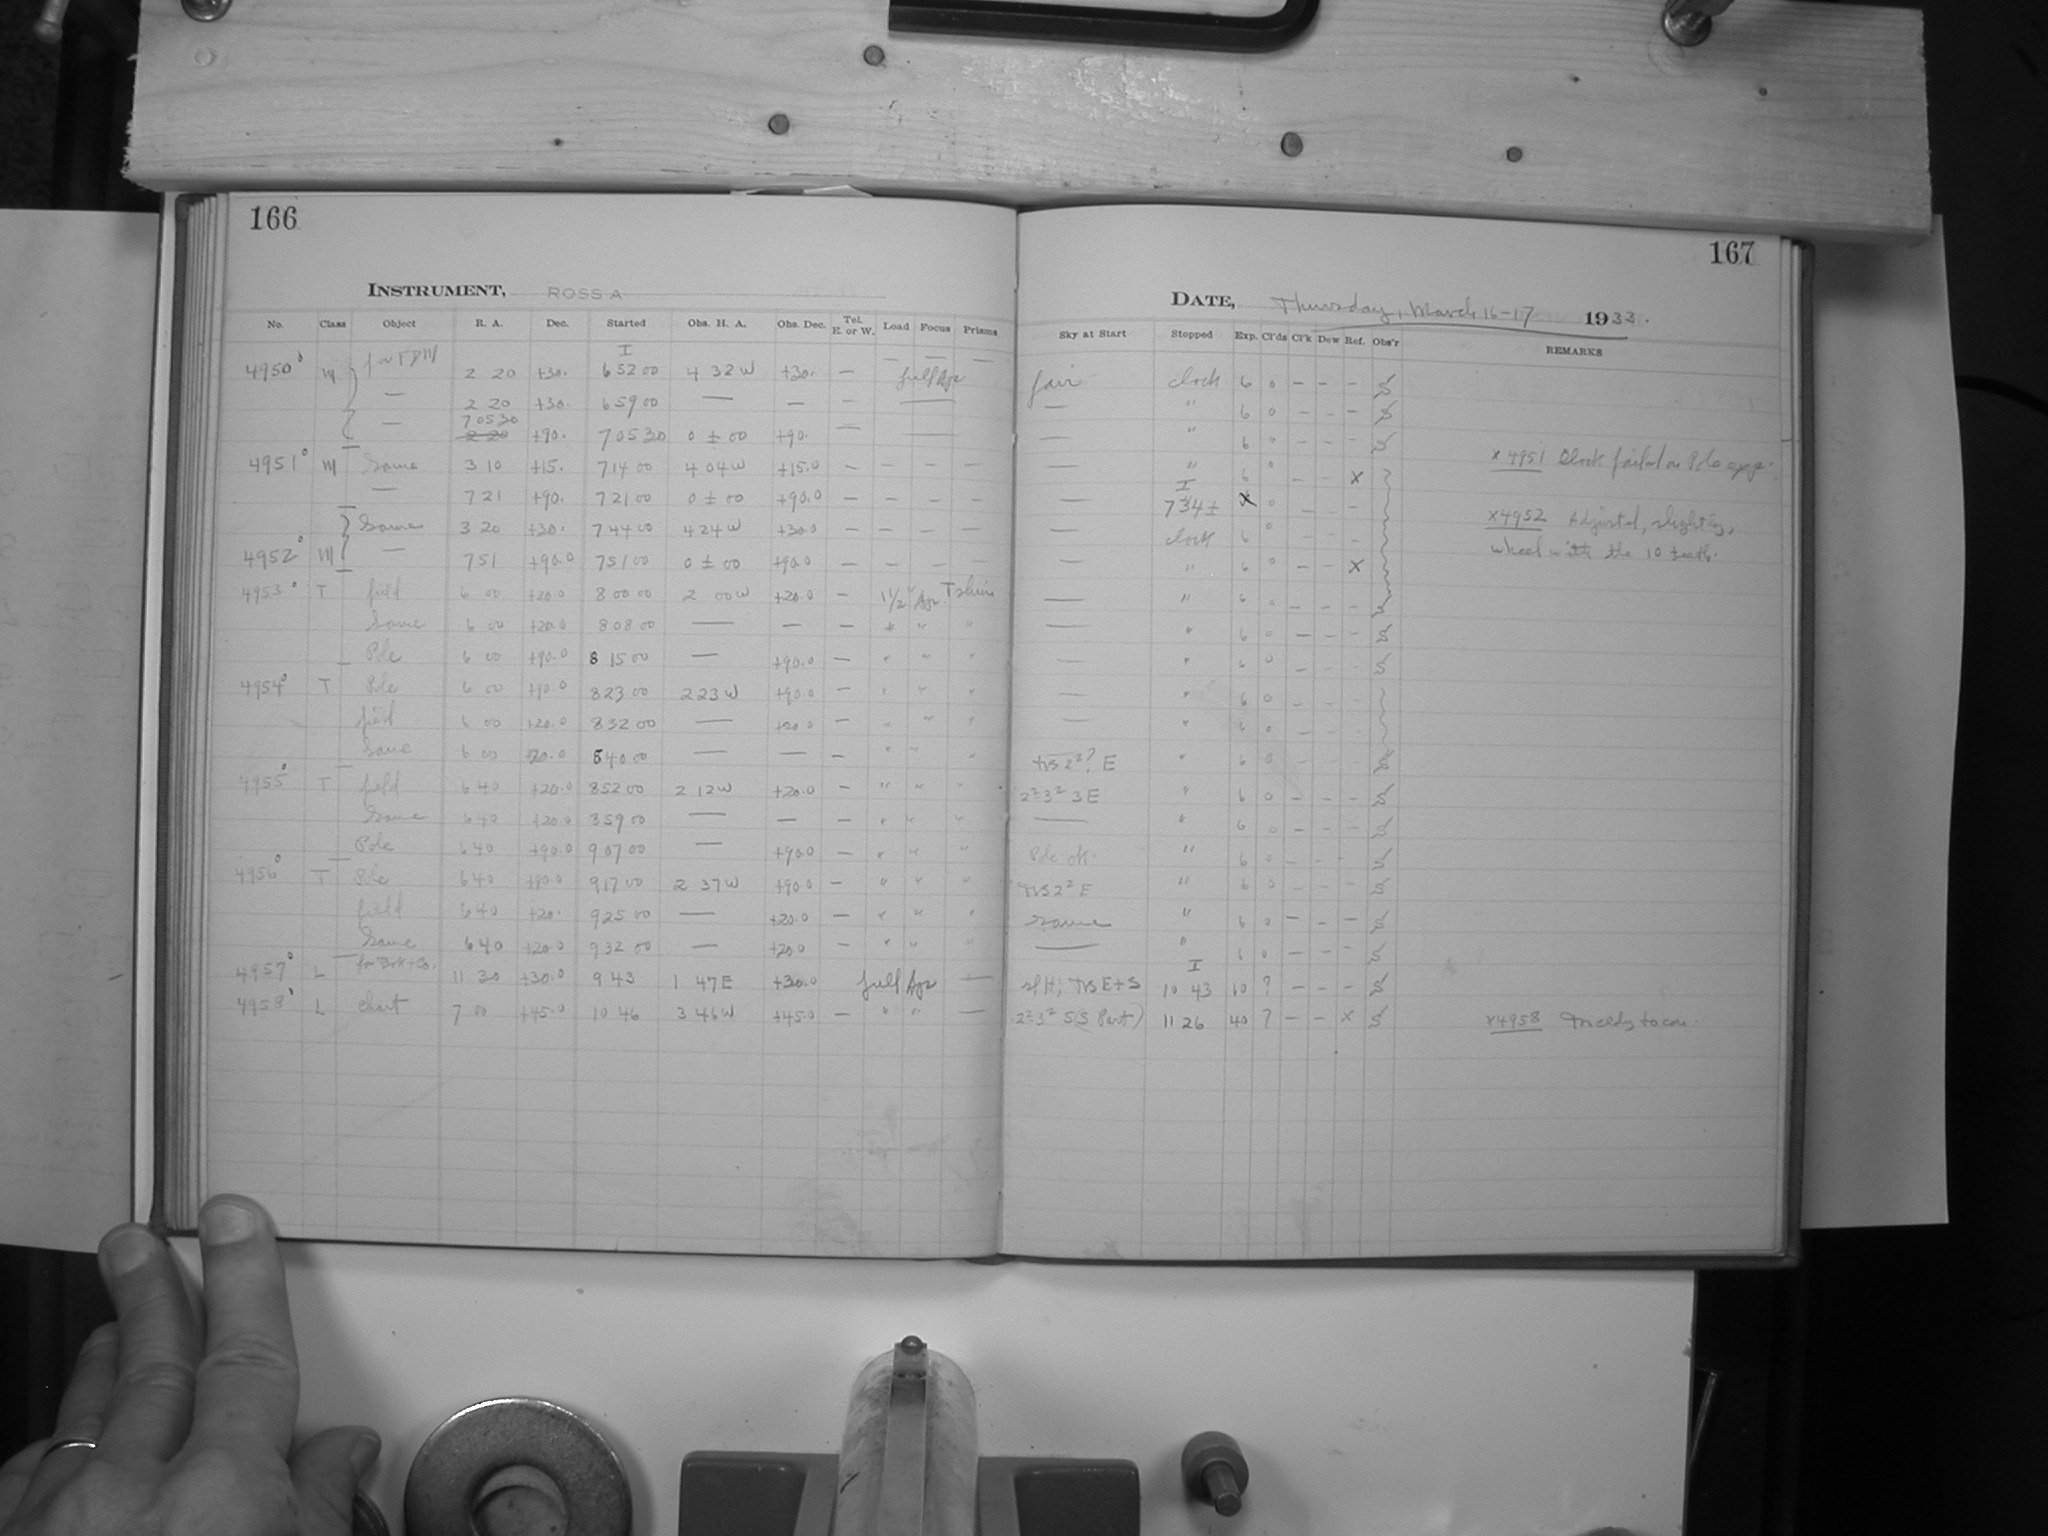 166
INSTRUMENT, ROSS A
No. Class Object R. A. Dec. Started Obs. H. A. Obs. Dec. Tel. E. or W. Load Focus Prisms
I
4950 M for 2 20 +30. 6 52 00 4 32 W +30. — full Apr
— 2 20 +30. 6 59 00 — — —
7 05 30
— 2 20 +90. 7 05 30 0 ± 00 +90. —
4951 M Same 3 10 +15. 7 14 00 4 04 W +15.0 — — — —
— 7 21 +90. 7 21 00 0 ± 00 +90.0 — — — —
Same 3 20 +30. 7 44 00 4 24 W +30.0 — — — —
4952 M — 7 51 +90.0 7 51 00 0 ± 00 +90.0 — — — —
4953 T field 6 00 +20.0 8 00 00 2 00 W +20.0 — 1 1/2" Apr
Same 6 00 +20.0 8 08 00 — — — " " "
Pole 6 00 +90.0 8 15 00 — +90.0 — " " "
4954 T Pole 6 00 +90.0 8 23 00 2 23 W +90.0 — " " "
field 6 00 +20.0 8 32 00 — +20.0 — " " "
Same 6 00 +20.0 8 40 00 — — — " " "
4955 T field 6 40 +20.0 8 52 00 2 12 W +20.0 — " " "
Same 6 40 +20.0 8 59 00 — — — " " "
Pole 6 40 +90.0 9 07 00 — +90.0 — " " "
4956 T Pole 6 40 +90.0 9 17 00 2 37 W +90.0 — " " "
field 6 40 +20. 9 25 00 — +20.0 — " " "
Same 6 40 +20.0 9 32 00 — +20.0 — " " "
4957 L for Bok + Co. 11 30 +30.0 9 43 1 47 E +30.0 full Apr —
4958 L chart 7 00 +45.0 10 46 3 46 W +45.0 — " " —
167
DATE, Thursday, March 16-17 1933.
Sky at Start Stopped Exp. Cl'ds Cl'k Dew Ref. Obs'r REMARKS
fair clock 6 0 — — — S
— " 6 0 — — — S
— " 6 0 — — — S
— " 6 0 — — x
x 4951 Clock failed on Pole exp.
I
— 7 34 ± x 0 — — —
— clock 6 0 — — —
x4952 Adjusted, slightly,
wheel with the 10 teeth.
— " 6 0 — — x
— " 6 0 — — — S
— " 6 0 — — — S
— " 6 0 — — — S
— " 6 0 — — —
— " 6 0 — — —
2²? E " 6 0 — — — S
2²3² 3 E " 6 0 — — — S
— " 6 0 — — — S
Pole ok. " 6 0 — — — S
2² E " 6 0 — — — S
Same " 6 0 — — — S
— " 6 0 — — — S
I
E+S 10 43 60 ? — — — S
2²3² S(S Part) 11 26 40 ? — — x S
x4958